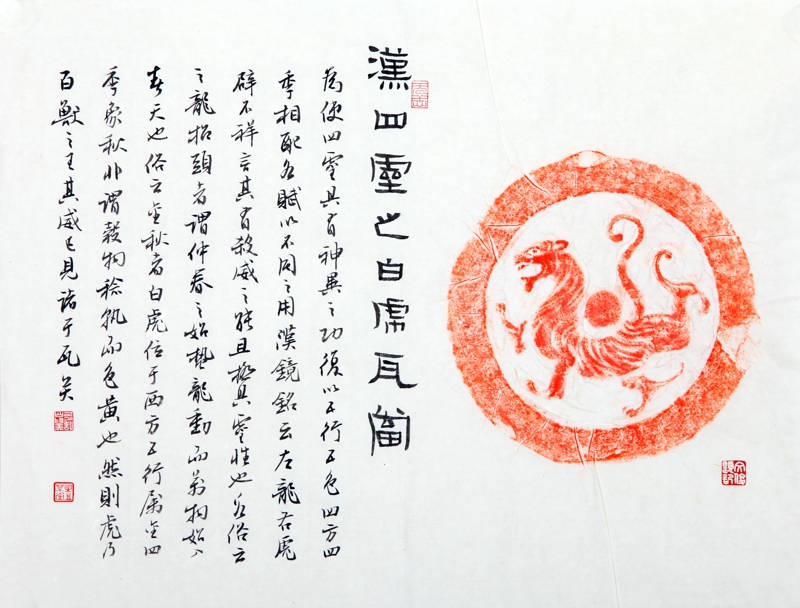 漢四靈之白虎瓦當
為使四靈具有神異之功復以五行五色四方四
季相配各賦以不同之用漢鏡銘云左龍右虎
辟不祥言其有殺威之能且極具靈性也名俗云
之龍抬頭者謂仲春之始蟄龍動而萬物始
春天也俗云金秋者白虎位于西方五行屬金四
季象秋非謂穀物稔孰而色黃也然則虎乃
百獸之王其威已見諸于瓦矣